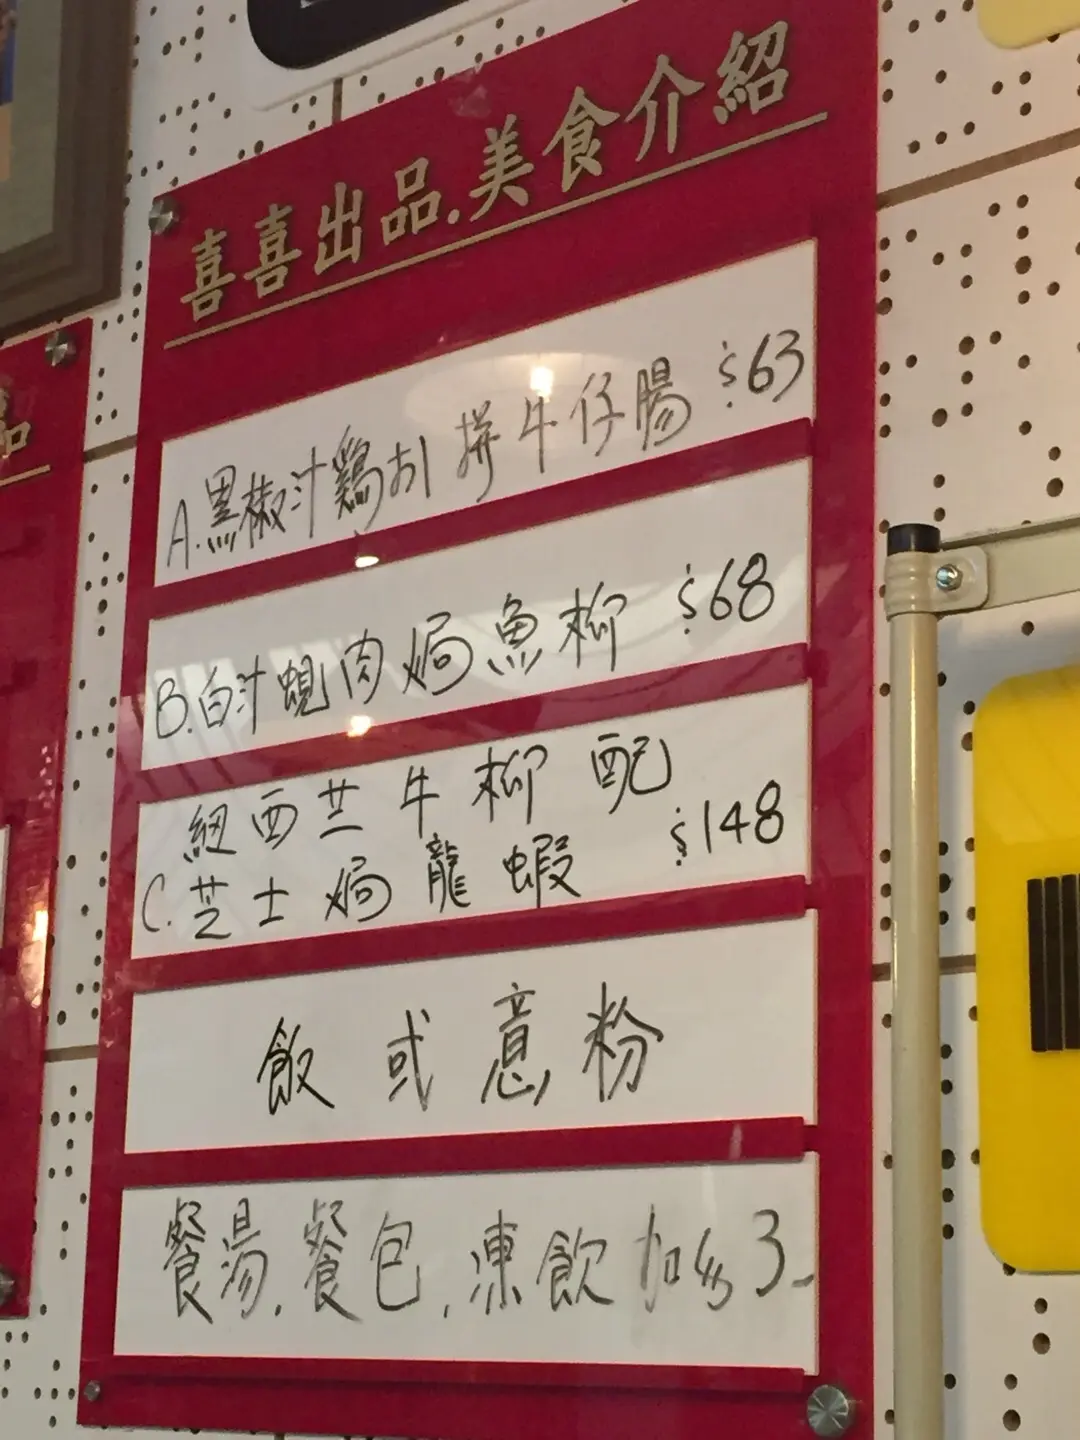 喜喜出品.美食介紹
A.黑椒汁鷄扒拼牛仔腸 $63
B.白汁蜆肉焗魚柳 $68
紐西兰牛柳配
C.芝士焗龍蝦 $148
飯或意粉
餐湯.餐包,凍飲加 $3
品